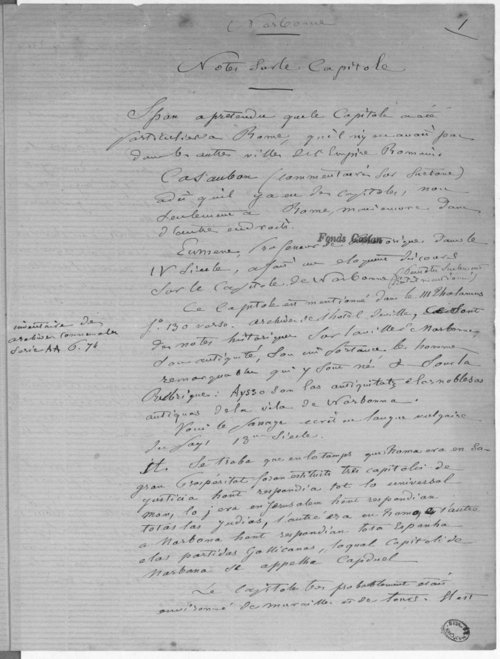 Narbonne
1
Notes sur le Capitole
Span a prétendu que le Capitole a été
particulier a Rome, qu'il n'y en avait pas
dans les autres villes de l'Empire Romain.
Casaubon (commentaires sur Suétone)
a dit qu'il y a eu des capitoles, non
seulement à Rome, mais encore dans
d'autres endroits.
Fonds Gaston
Eumene, professeur de rhétorique dans le
IV Siecle, a fait un eloquent discours
sur le Capitole de Narbonne
Ce Capitole est mentionné dans le Mss Thalamus
fo 130 verso. archives de l'hotel de ville,
inventaire des
archives communales
Serie AA 6. 76
des notes historiques sur la ville de Narbonne,
son antiquité, son importance les hommes
remarquables qui y sont nés & sous la
Rubrique: Aysso son las antiquitatz e las noblesas
antiquas de la vila de Narbona.
Voici le passage ecrit en langue vulgaire
du pays 13me Siecle.
It. Se troba que en lo temps que Roma era en sa
gran prosperitat foron estituits tres capitolis de
justicia hont respondia tot lo universal
mon, la j era en Jerusalem hont respondian
totas las Judias, l'autre era en Roma, e l'autre
a Narbona hont respondian tota Espanha
e las partidas Gallicanas, laqual capitoli de
Narbona se appelha Capduel
Le Capitole tres probablement était
environné de murailles et de tours. Il est